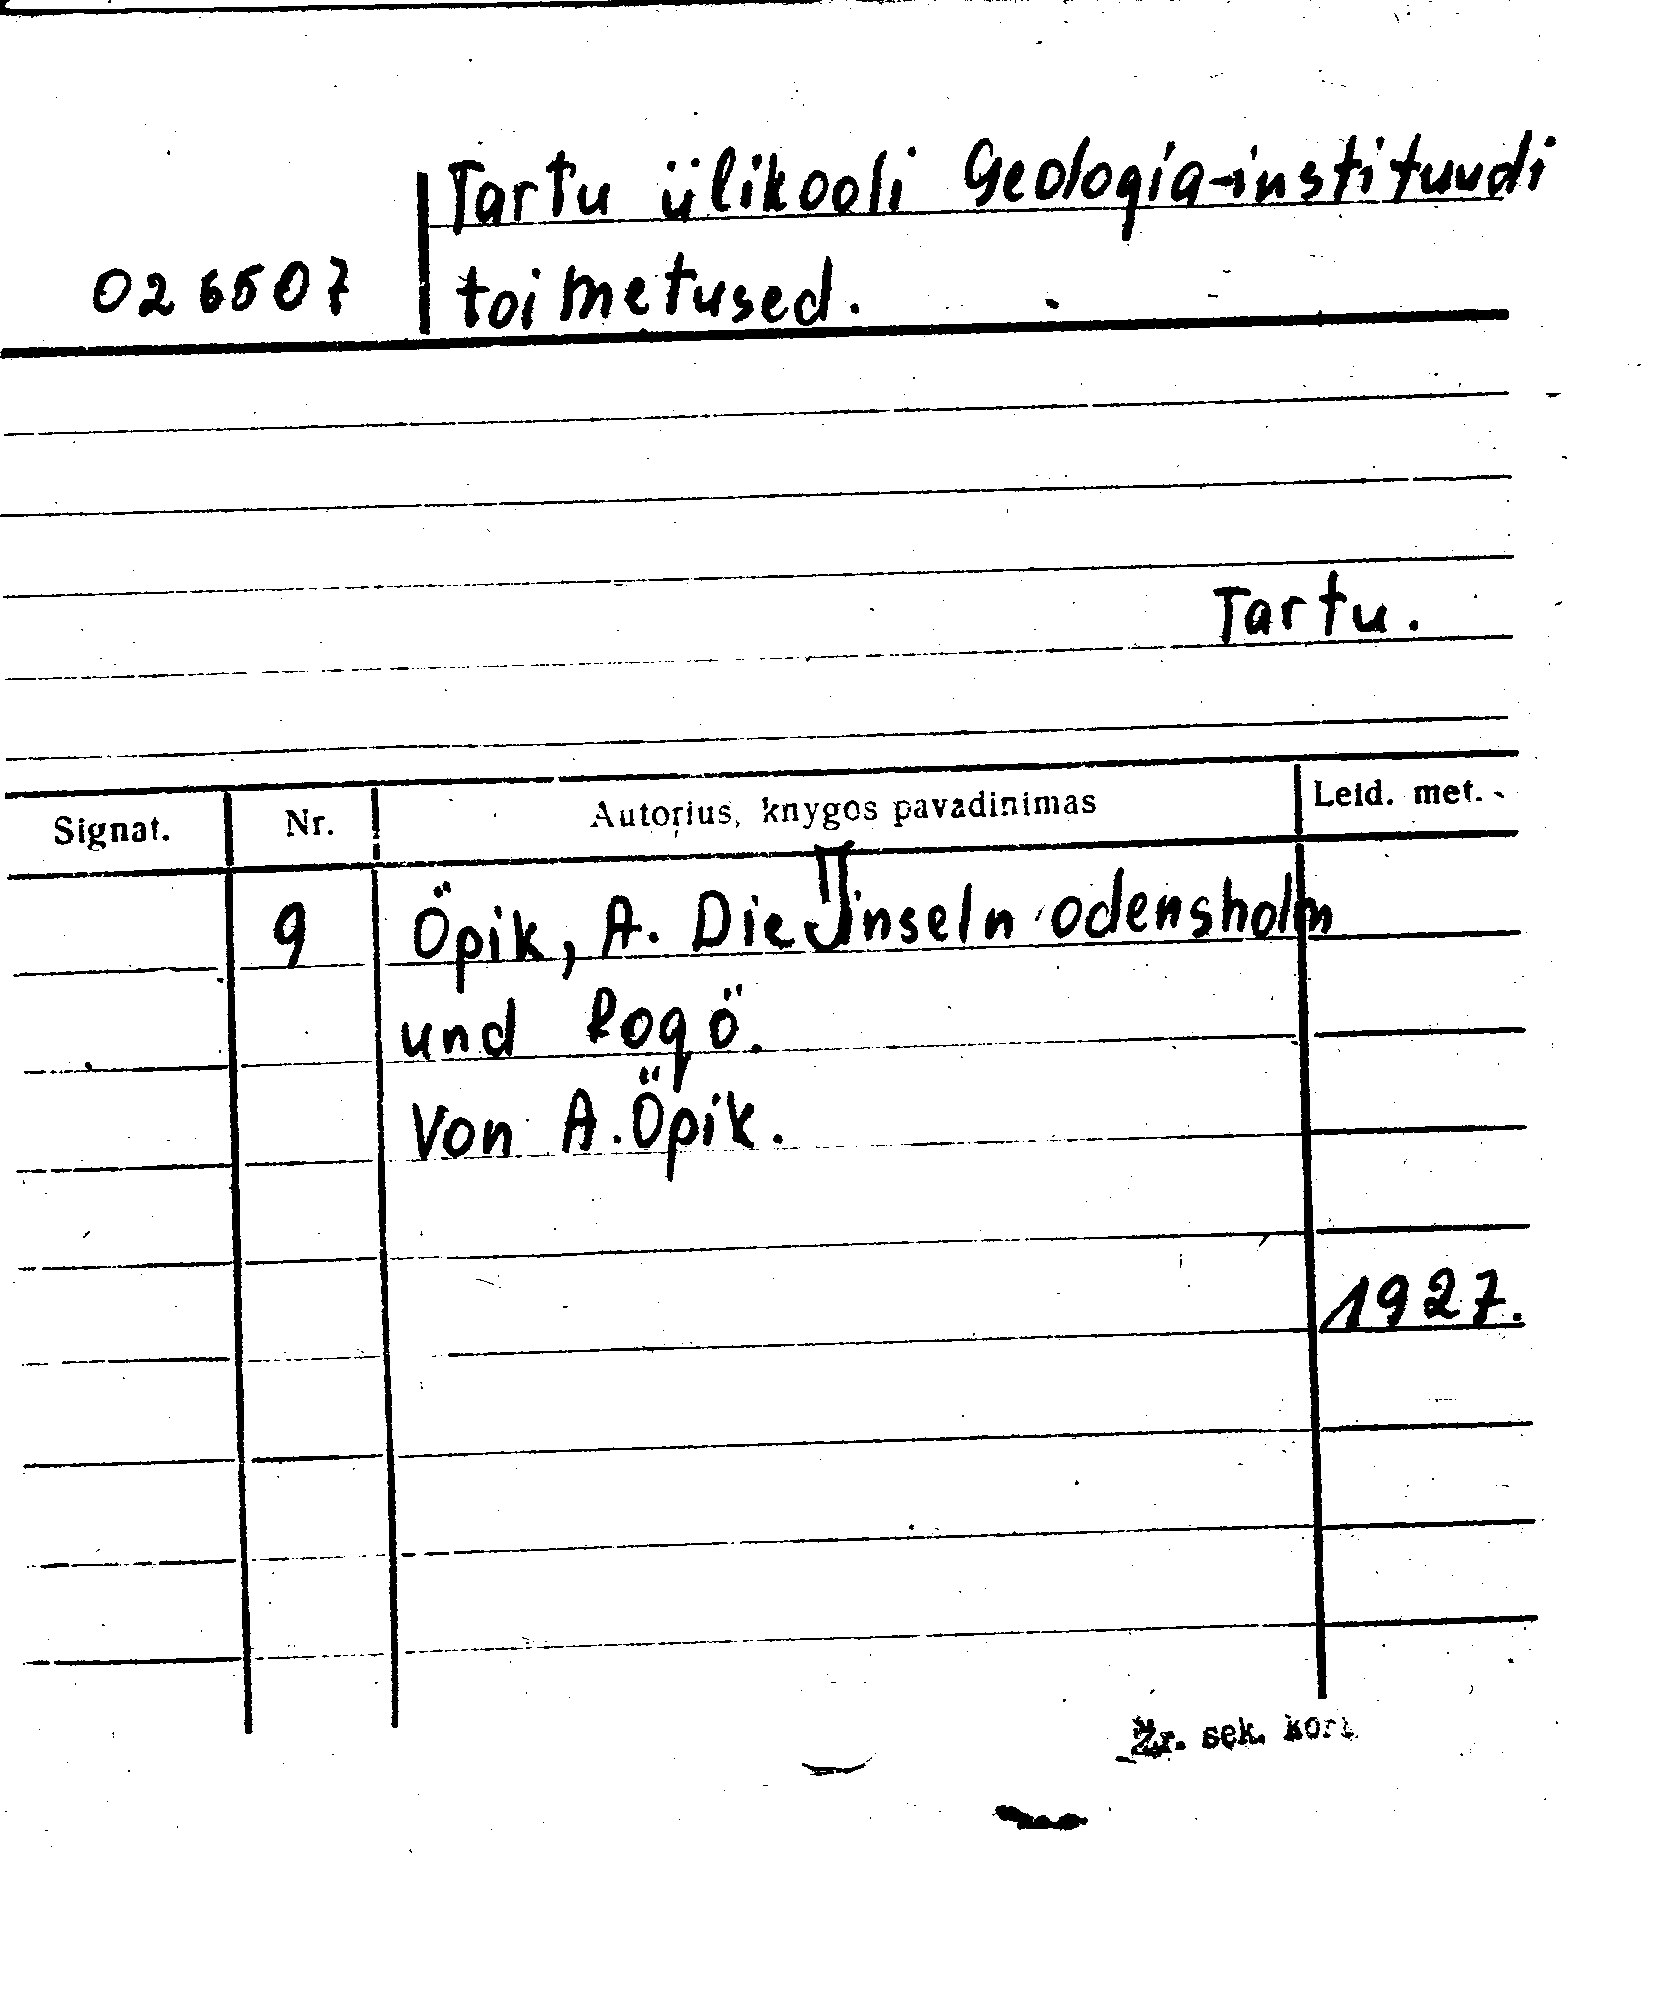 Tartu ülikooli Geologia-instituudi
026507 toimetused.
Tartu.
Signat. Nr. Autorius, knygos pavadinimas Leid. met.
9 Öpik, A. Die Jinseln odensholm
und Rogö.
Von A. Öpik.
1927.
Žr. sek. kort.